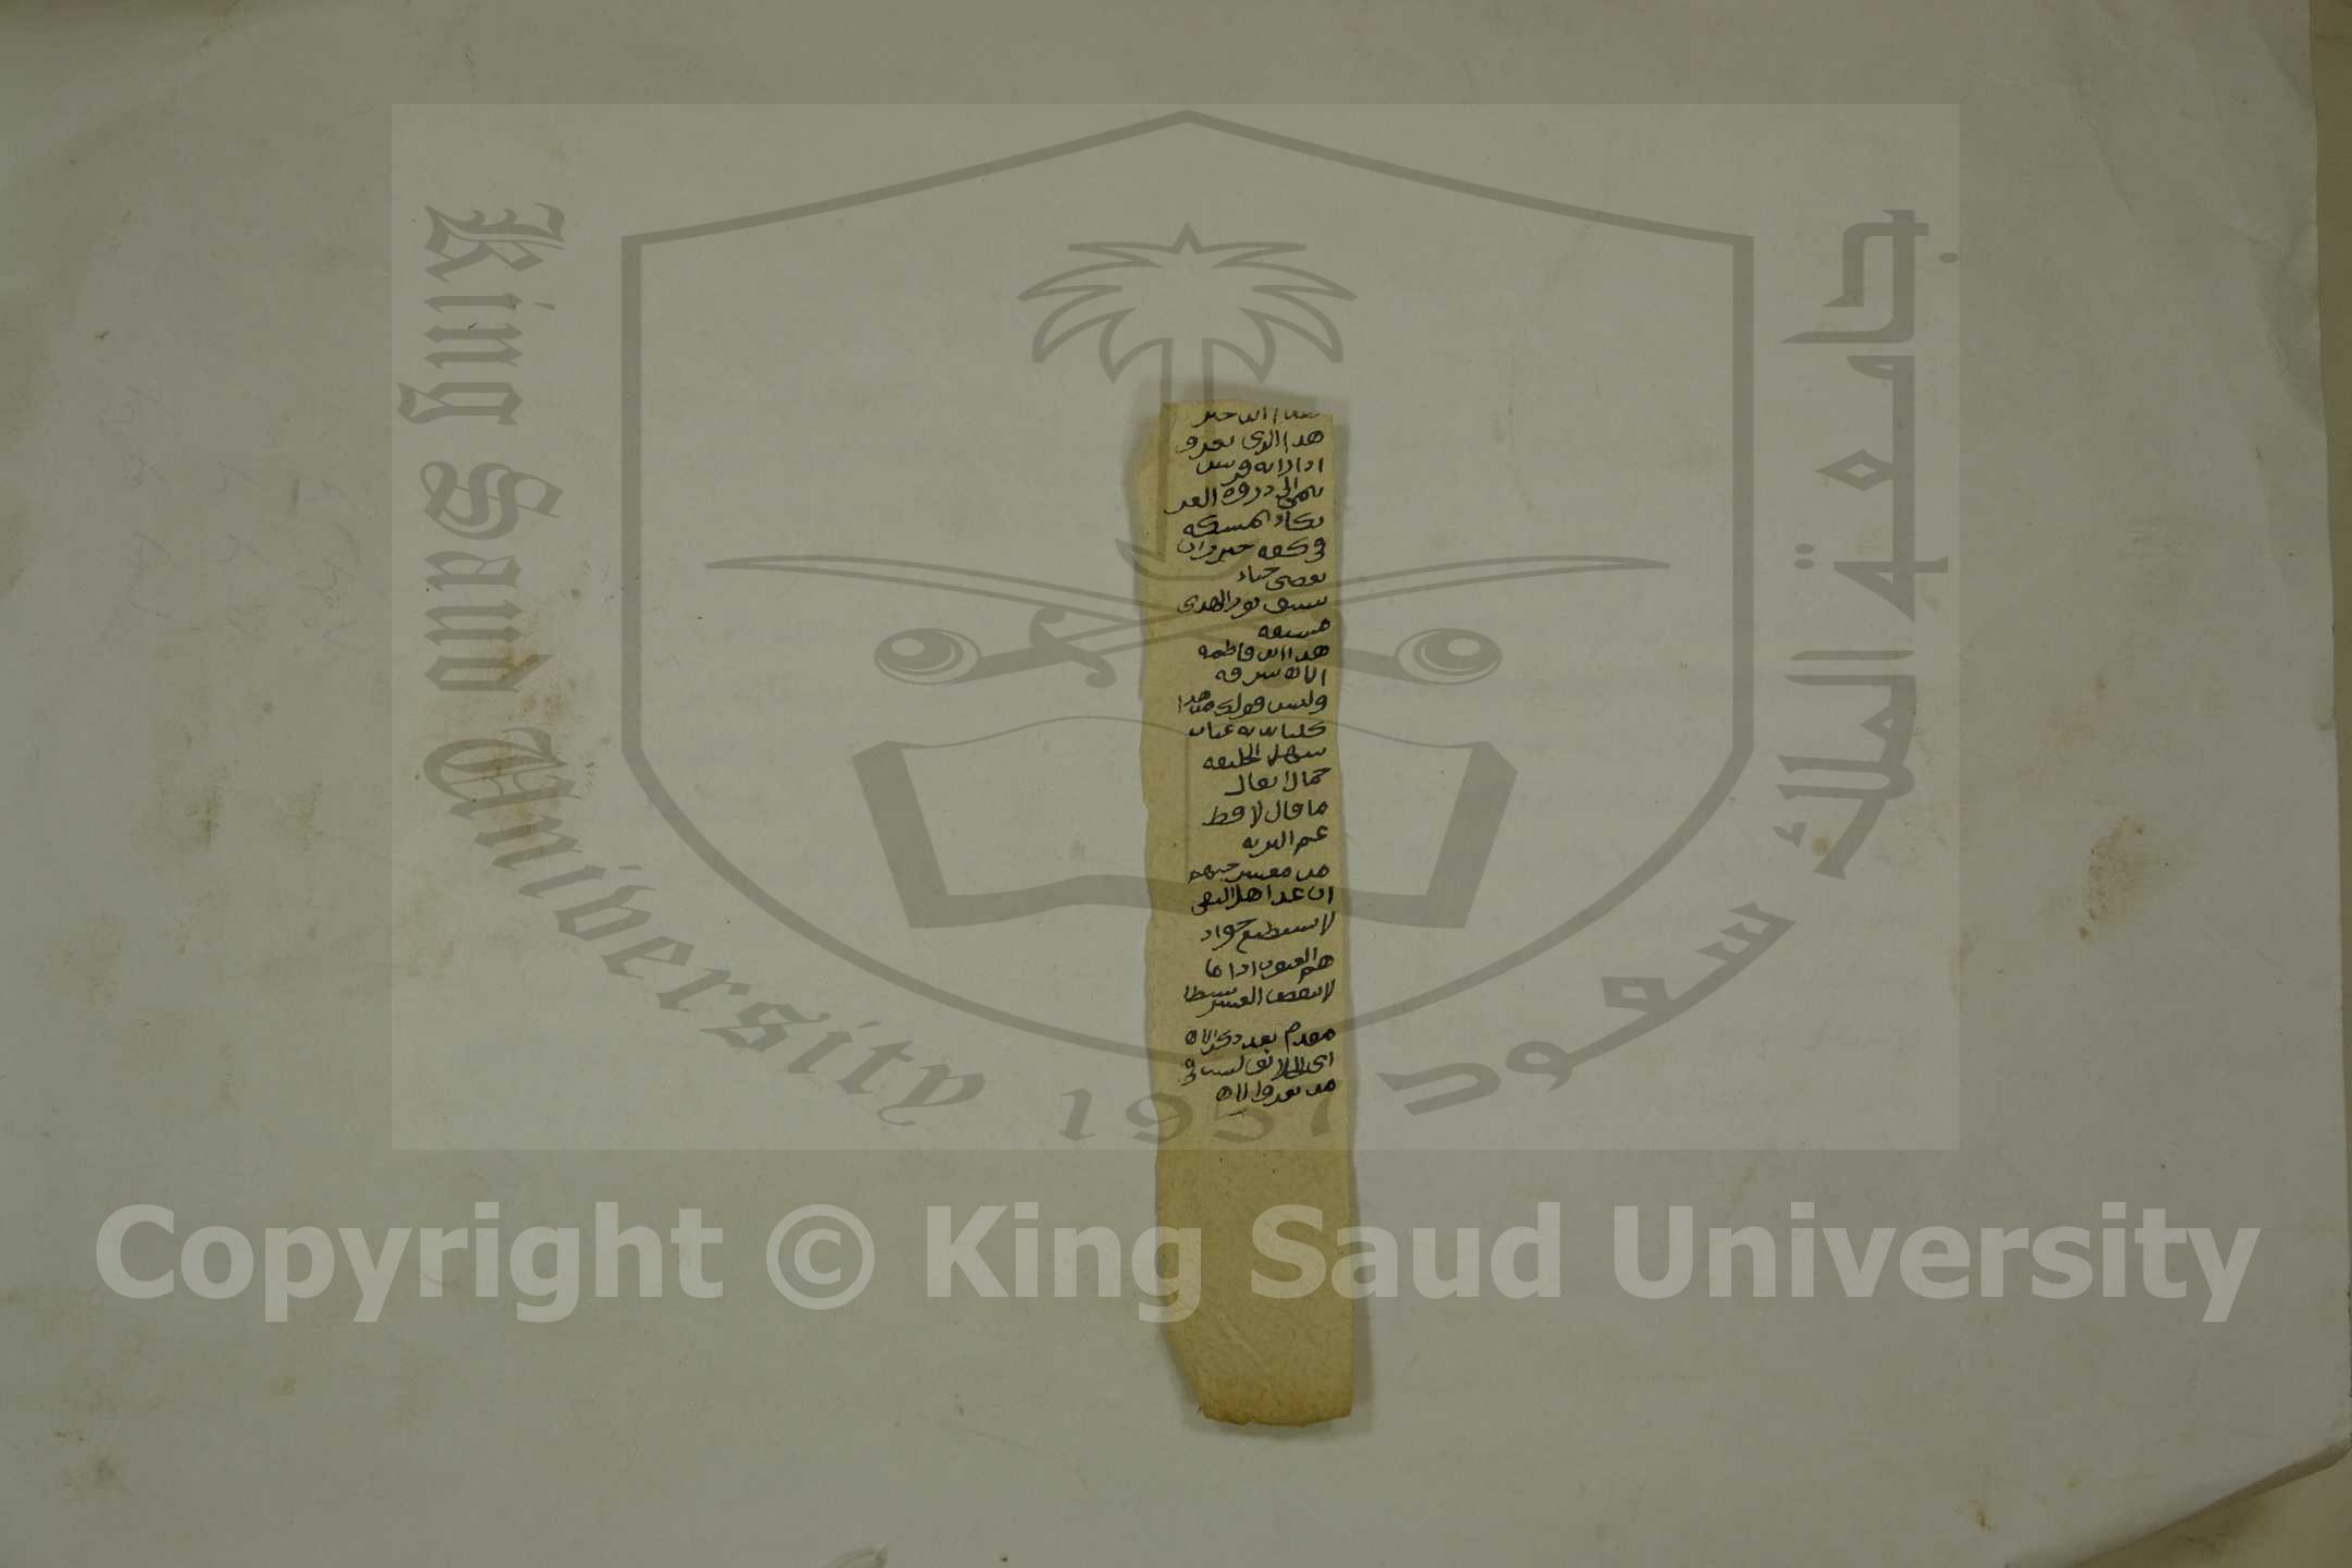 هذا ابن خير
هذا الذى تعرف
اذا راته قريش
ينمى الى ذروة العز
يكاد يمسكه
فى كفه خيزران
يغضى حياء
ينشق نور الهدى
مشتقه
هذا ابن فاطمة
الله شرفه
وليس قولك من هذا
كلتا يديه غياث
سهل الخليقه
حمال اثقال
ما قال لا قط
عم البريه
من معشر حبهم
ان عد اهل التقى
لا يستطيع جواد
هم الغيوث اذا ما
لا ينقص العسر بسطا
مقدم بعد ذكر الله
اى الخلائق ليست فى
من يعرف الله
King Saud University
1957
جامعة الملك سعود
Copyright © King Saud University